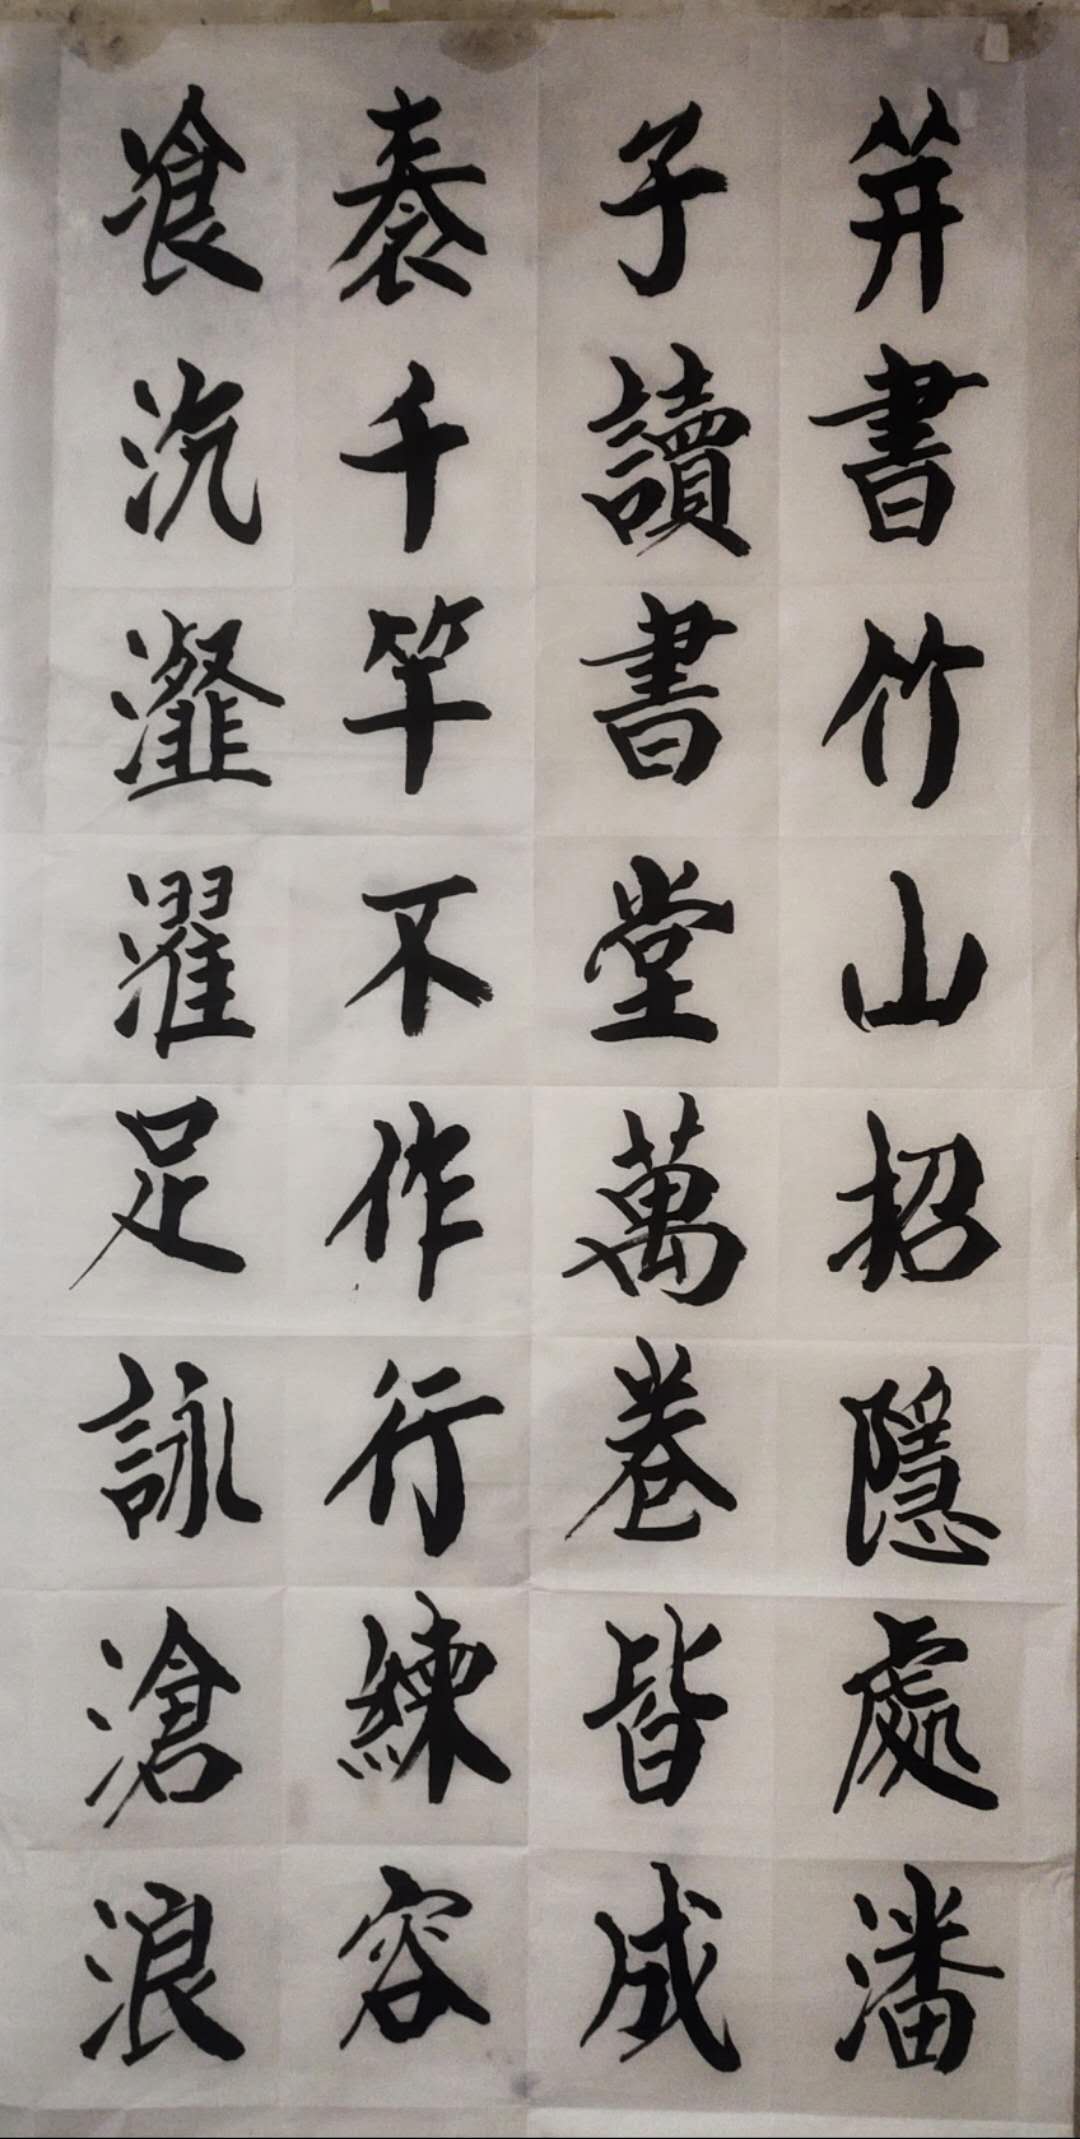 并書竹山招隱處潘
子讀書堂萬卷皆成
袠千竿不作行練容
飡沆瀣濯足詠滄浪